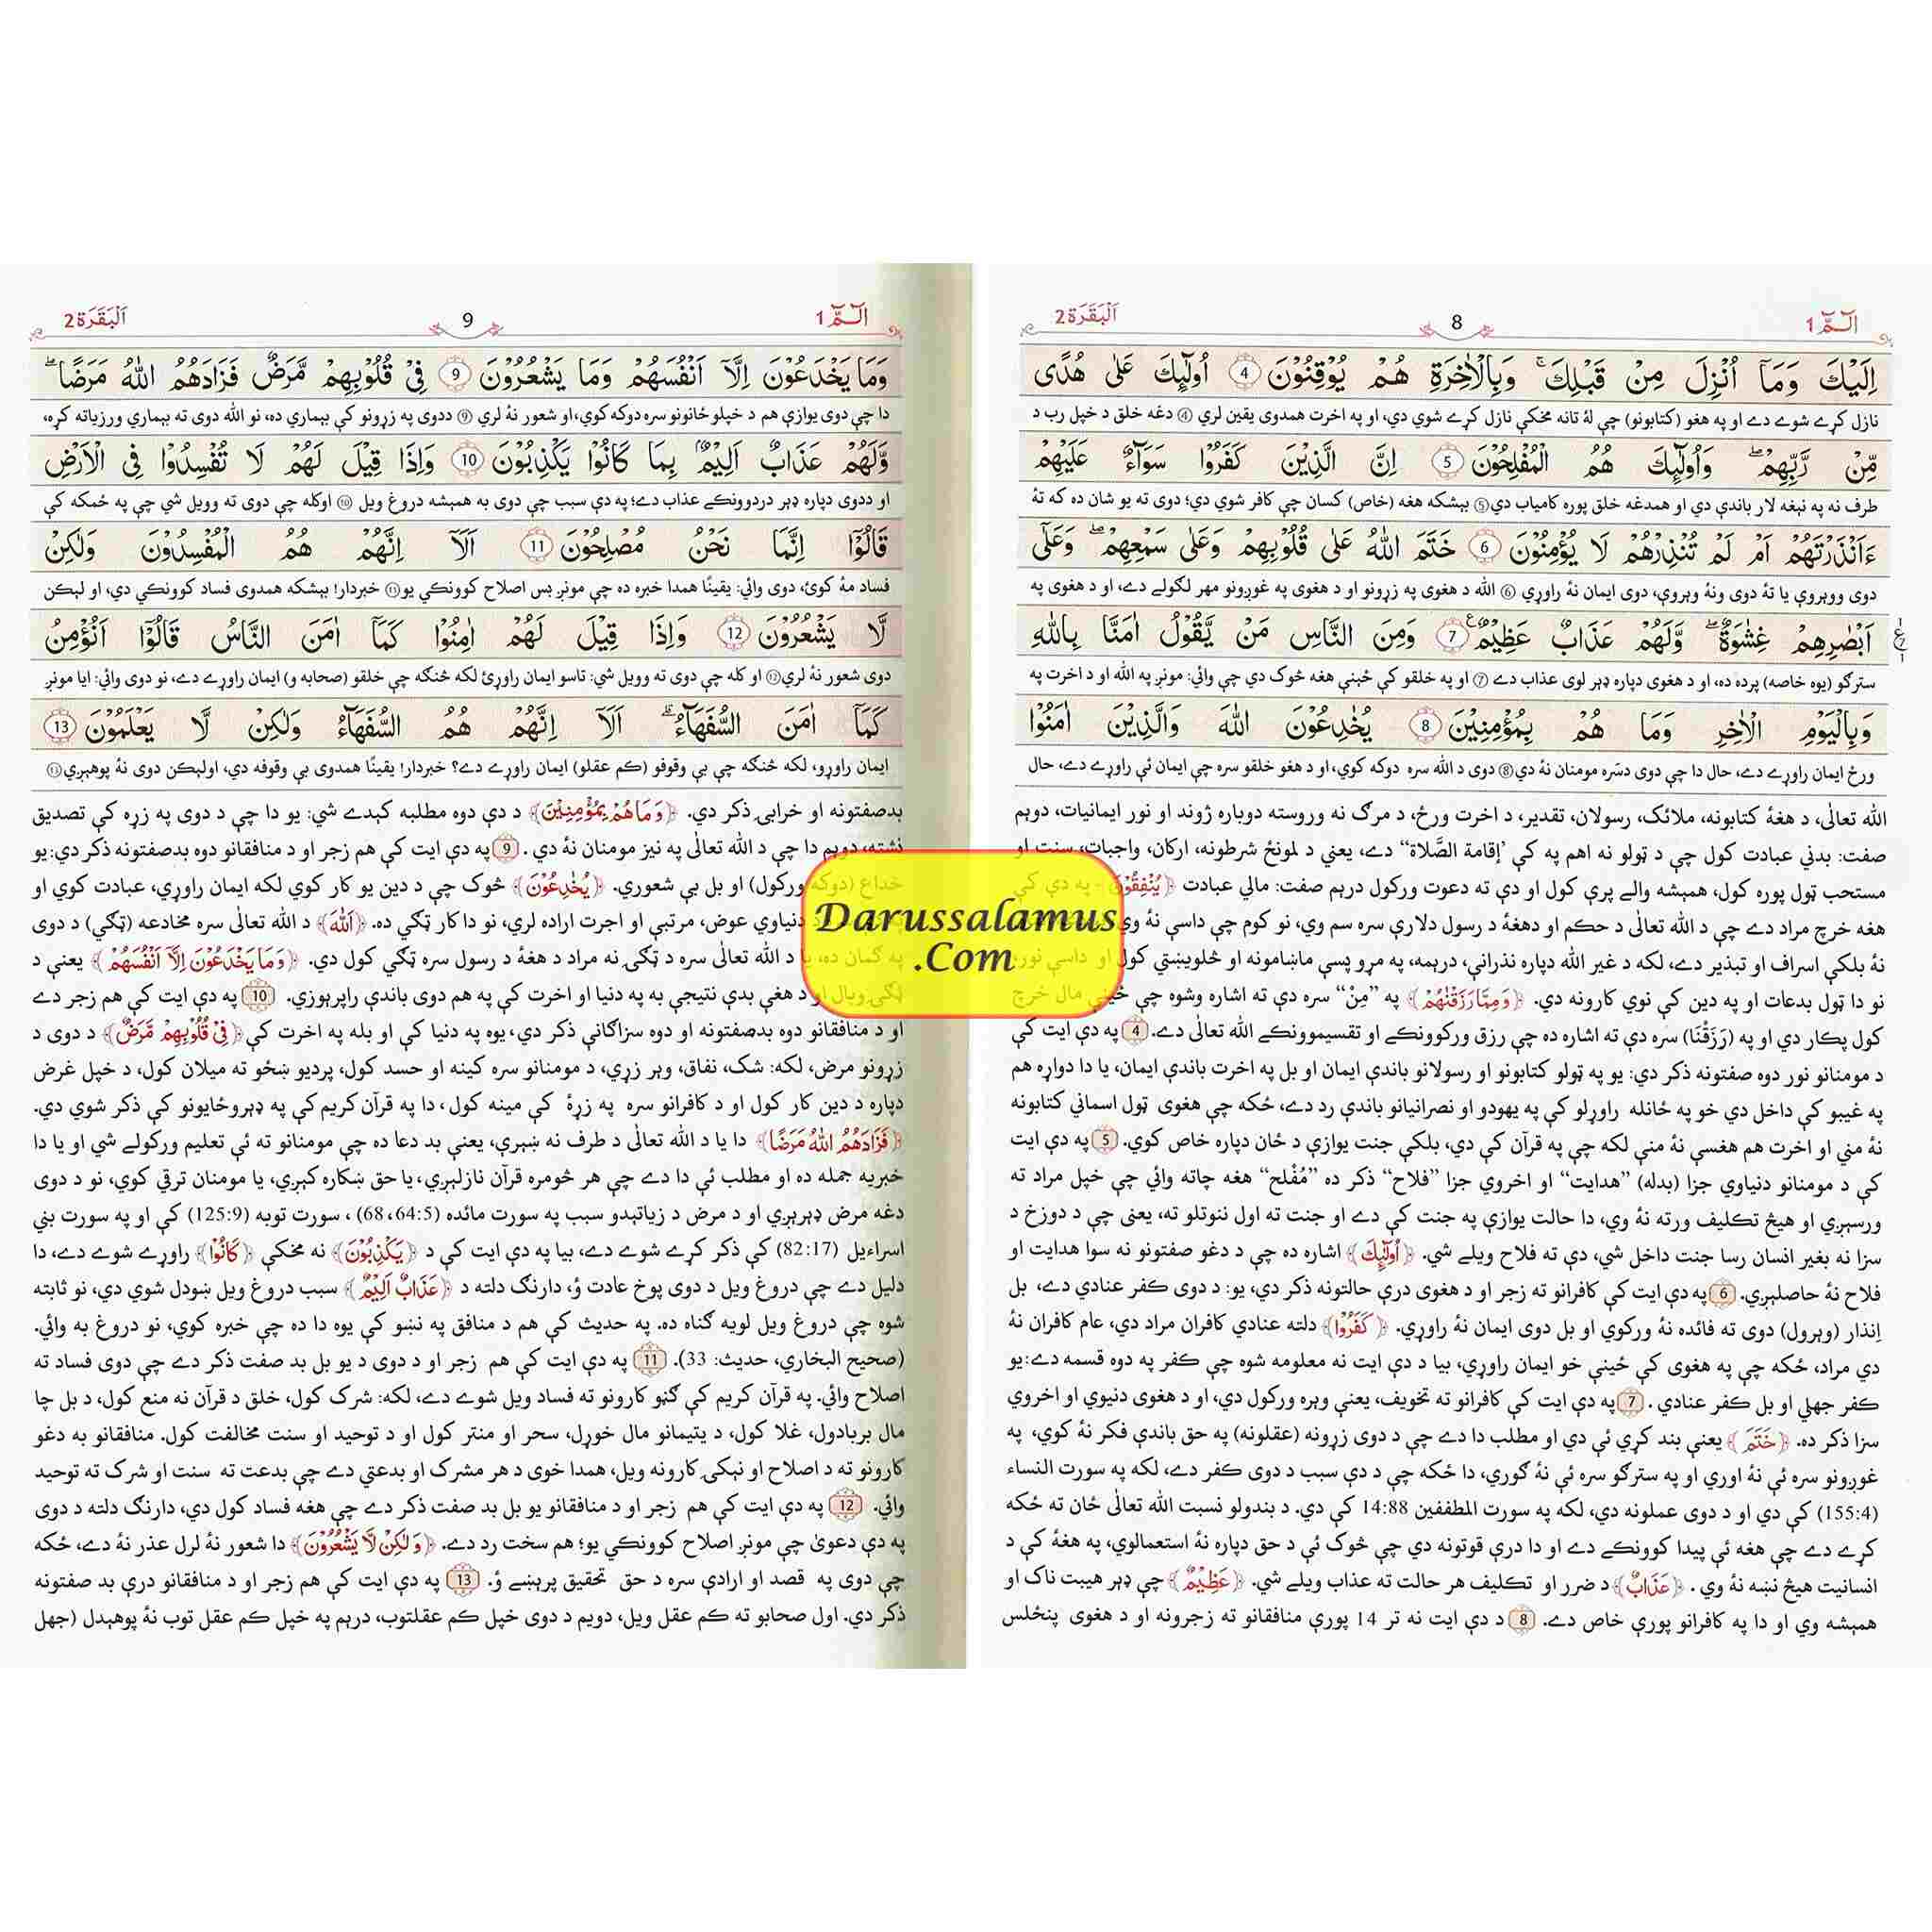 الٓـمّٓ 1
8
اَلۡبَقَرَة 2
اِلَيۡكَ وَمَاۤ اُنۡزِلَ مِنۡ قَبۡلِكَ ۚ وَبِالۡاٰخِرَةِ هُمۡ يُوۡقِنُوۡنَ 4 اُولٰٓئِكَ عَلٰى هُدًى
نازل کړے شوے دے او په هغو (کتابونو) چې لۀ تانه مخکې نازل کړے شوي دي، او په اخرت همدوی يقين لري ④ دغه خلق د خپل رب د
مِّنۡ رَّبِّهِمۡ ۖ وَاُولٰٓئِكَ هُمُ الۡمُفۡلِحُوۡنَ 5 اِنَّ الَّذِيۡنَ كَفَرُوۡا سَوَآءٌ عَلَيۡهِمۡ
طرف نه په نېغه لار باندې دي او همدغه خلق پوره کامياب دي⑤ بېشکه هغه (خاص) کسان چې کافر شوي دي؛ دوی ته يو شان ده که تۀ
ءَاَنۡذَرۡتَهُمۡ اَمۡ لَمۡ تُنۡذِرۡهُمۡ لَا يُؤۡمِنُوۡنَ 6 خَتَمَ اللّٰهُ عَلٰى قُلُوۡبِهِمۡ وَعَلٰى سَمۡعِهِمۡ ۖ وَعَلٰٓى
دوی ووېروې يا تۀ دوی ونۀ وېروې، دوی ايمان نۀ راوړي ⑥ الله د هغوی په زړونو او د هغوی په غوږونو مهر لګولے دے، او د هغوی په
اَبۡصٰرِهِمۡ غِشٰوَةٌ ۖ وَّلَهُمۡ عَذَابٌ عَظِيۡمٌ 7 وَمِنَ النَّاسِ مَنۡ يَّقُوۡلُ اٰمَنَّا بِاللّٰهِ
سترګو (يوه خاصه) پرده ده، او د هغوی دپاره ډېر لوی عذاب دے ⑦ او په خلقو کې ځېنې هغه څوک دي چې وائي: مونږ په الله او د اخرت په
وَبِالۡيَوۡمِ الۡاٰخِرِ وَمَا هُمۡ بِمُؤۡمِنِيۡنَ 8 يُخٰدِعُوۡنَ اللّٰهَ وَالَّذِيۡنَ اٰمَنُوۡا
ورځ ايمان راوړے دے، حال دا چې دوی دسَره مومنان نۀ دي⑧ دوی د الله سره دوکه کوي، او د هغو خلقو سره چې ايمان ئې راوړے دے، حال
الله تعالٰی، د هغۀ کتابونه، ملائک، رسولان، تقدير، د اخرت ورځ، د مرګ نه وروسته دوباره ژوند او نور ايمانيات، دوېم
صفت: بدني عبادت کول چې د ټولو نه اهم په کې ’إقامة الصَّلاة“ دے، يعنې د لمونځ شرطونه، ارکان، واجبات، سنت او
مستحب ټول پوره کول، همېشه والے پرې کول او دې ته دعوت ورکول درېم صفت: مالي عبادت ﴿يُنۡفِقُوۡنَ﴾ - په دې کې
هغه خرچ مراد دے چې د الله تعالٰی د حکم او دهغۀ د رسول دلارې سره سم وي، نو کوم چې داسې نۀ وي
نۀ بلکې اسراف او تبذير دے، لکه د غير الله دپاره نذرانې، درېمه، په مړو پسې ماښامونه او څلويښتي کول او داسې نور،
نو دا ټول بدعات او په دين کې نوي کارونه دي. ﴿وَمِمَّا رَزَقۡنٰهُمۡ﴾ په ”مِنْ“ سره دې ته اشاره وشوه چې ځينې مال خرچ
کول پکار دي او په (رَزَقْنَا) سره دې ته اشاره ده چې رزق ورکوونکے او تقسيموونکے الله تعالٰی دے. 4 په دې ايت کې
د مومنانو نور دوه صفتونه ذکر دي: يو په ټولو کتابونو او رسولانو باندې ايمان او بل په اخرت باندې ايمان، يا دا دواړه هم
په غيبو کې داخل دي خو په ځانله راوړلو کې په يهودو او نصرانيانو باندې رد دے، ځکه چې هغوی ټول اسماني کتابونه
نۀ مني او اخرت هم هغسې نۀ منې لکه چې په قرآن کې دي، بلکې جنت يوازې د ځان دپاره خاص کوي. 5 په دې ايت
کې د مومنانو دنياوي جزا (بدله) ”هدايت“ او اخروي جزا ”فلاح“ ذکر ده ”مُفْلح“ هغه چاته وائي چې خپل مراد ته
ورسېږي او هېڅ تکليف ورته نۀ وي، دا حالت يوازې په جنت کې دے او جنت ته اول ننوتلو ته، يعنې چې د دوزخ د
سزا نه بغير انسان رسا جنت داخل شي، دې ته فلاح ويلے شي. ﴿اُولٰٓئِكَ﴾ اشاره ده چې د دغو صفتونو نه سوا هدايت او
فلاح نۀ حاصلېږي. 6 په دې ايت کې کافرانو ته زجر او د هغوی درې حالتونه ذکر دي، يو: د دوی کفر عنادي دے، بل
اِنذار (وېرول) دوی ته فائده نۀ ورکوي او بل دوی ايمان نۀ راوړي. ﴿كَفَرُوۡا﴾ دلته عنادي کافران مراد دي، عام کافران نۀ
دي مراد، ځکه چې په هغوی کې ځينې خو ايمان راوړي، بيا د دې ايت نه معلومه شوه چې کفر په دوه قسمه دے: يو
کفر جهلي او بل کفر عنادي . 7 په دې ايت کې کافرانو ته تخويف، يعنې وېره ورکول دي، او د هغوی دنيوي او اخروي
سزا ذکر ده. ﴿خَتَمَ﴾ يعنې بند کړي ئې دي او مطلب دا دے چې د دوی زړونه (عقلونه) په حق باندې فکر نۀ کوي، په
غوږونو سره ئې نۀ اوري او په سترګو سره ئې نۀ ګوري، دا ځکه چې د دې سبب د دوی کفر دے، لکه په سورت النساء
(155:4) کې دي او د دوی عملونه دي، لکه په سورت المطففين 14:88 کې دي. د بندولو نسبت الله تعالٰی ځان ته ځکه
کړے دے چې هغه ئې پيدا کوونکے دے او دا درې قوتونه دي چې څوک ئې د حق دپاره نۀ استعمالوي، په هغۀ کې د
انسانيت هېڅ نښه نۀ وي . ﴿عَذَابٌ﴾ د ضرر او تکليف هر حالت ته عذاب ويلے شي. ﴿عَظِيۡمٌ﴾ چې ډېر هيبت ناک او
همېشه وي او دا په کافرانو پورې خاص دے. 8 د دې ايت نه تر 14 پورې منافقانو ته زجرونه او د هغوی پنځلس
الٓـمّٓ 1
9
اَلۡبَقَرَة 2
وَمَا يَخۡدَعُوۡنَ اِلَّاۤ اَنۡفُسَهُمۡ وَمَا يَشۡعُرُوۡنَ 9 فِىۡ قُلُوۡبِهِمۡ مَّرَضٌ فَزَادَهُمُ اللّٰهُ مَرَضًا ۖ
دا چې دوی يوازې هم د خپلو ځانونو سره دوکه کوي، او شعور نۀ لري ⑨ ددوی په زړونو کې بېماري ده، نو الله دوی ته بېماري ورزياته کړه،
وَّلَهُمۡ عَذَابٌ اَلِيۡمٌ بِمَا كَانُوۡا يَكۡذِبُوۡنَ 10 وَاِذَا قِيۡلَ لَهُمۡ لَا تُفۡسِدُوۡا فِى الۡاَرۡضِ
او ددوی دپاره ډېر دردوونکے عذاب دے؛ په دې سبب چې دوی به همېشه دروغ ويل ⑩ اوکله چې دوی ته وويل شي چې په ځمکه کې
قَالُوۡٓا اِنَّمَا نَحۡنُ مُصۡلِحُوۡنَ 11 اَلَاۤ اِنَّهُمۡ هُمُ الۡمُفۡسِدُوۡنَ وَلٰكِنۡ
فساد مۀ کوئ، دوی وائي: يقينًا همدا خبره ده چې مونږ بس اصلاح کوونکي يو⑪ خبردار! بېشکه همدوی فساد کوونکي دي، او لېکن
لَّا يَشۡعُرُوۡنَ 12 وَاِذَا قِيۡلَ لَهُمۡ اٰمِنُوۡا كَمَاۤ اٰمَنَ النَّاسُ قَالُوۡٓا اَنُؤۡمِنُ
دوی شعور نۀ لري⑫ او کله چې دوی ته وويل شي: تاسو ايمان راوړئ لکه څنګه چې خلقو (صحابه و) ايمان راوړے دے، نو دوی وائي: ايا مونږ
كَمَاۤ اٰمَنَ السُّفَهَآءُ ؕ اَلَاۤ اِنَّهُمۡ هُمُ السُّفَهَآءُ وَلٰكِنۡ لَّا يَعۡلَمُوۡنَ 13
ايمان راوړو، لکه څنګه چې بې وقوفو (کم عقلو) ايمان راوړے دے؟ خبردار! يقينًا همدوی بې وقوفه دي، اولېکن دوی نۀ پوهېږي⑬
بدصفتونه او خرابۍ ذکر دي. ﴿وَمَا هُمۡ بِمُؤۡمِنِيۡنَ﴾ د دې دوه مطلبه کېدے شي: يو دا چې د دوی په زړه کې تصديق
نشته، دوېم دا چې د الله تعالٰی په نيز مومنان نۀ دي . 9 په دې ايت کې هم زجر او د منافقانو دوه بدصفتونه ذکر دي: يو
خداع (دوکه ورکول) او بل بې شعوري. ﴿يُخٰدِعُوۡنَ﴾ څوک چې د دين يو کار کوي لکه ايمان راوړي، عبادت کوي او
دنياوي عوض، مرتبې او اجرت اراده لري، نو دا کار ټګي ده. ﴿اللّٰهَ﴾ د الله تعالٰی سره مخادعه (ټګي) د دوی
په ګمان ده، يا د الله تعالٰی سره د ټګۍ نه مراد د هغۀ د رسول سره ټګي کول دي. ﴿وَمَا يَخۡدَعُوۡنَ اِلَّاۤ اَنۡفُسَهُمۡ﴾ يعنې د
ټګۍ وبال او د هغې بدې نتيجې به په دنيا او اخرت کې په هم دوی باندې راپرېوزي. 10 په دې ايت کې هم زجر دے
او د منافقانو دوه بدصفتونه او دوه سزاګانې ذکر دي، يوه په دنيا کې او بله په اخرت کې ﴿فِىۡ قُلُوۡبِهِمۡ مَّرَضٌ﴾ د دوی د
زړونو مرض، لکه: شک، نفاق، وېر زړي، د مومنانو سره کينه او حسد کول، پرديو ښځو ته ميلان کول، د خپل غرض
دپاره د دين کار کول او د کافرانو سره په زړۀ کې مينه کول، دا په قرآن کريم کې په ډېروځايونو کې ذکر شوي دي.
﴿فَزَادَهُمُ اللّٰهُ مَرَضًا﴾ دا يا د الله تعالٰی د طرف نه ښېرې، يعنې بد دعا ده چې مومنانو ته ئې تعليم ورکولے شي او يا دا
خبريه جمله ده او مطلب ئې دا دے چې هر څومره قرآن نازلېږي، يا حق ښکاره کېږي، يا مومنان ترقي کوي، نو د دوی
دغه مرض ډېرېږي او د مرض د زياتېدو سبب په سورت مائده (64:5، 68) ، سورت توبه (125:9) کې او په سورت بني
اسراءيل (82:17) کې ذکر کړے شوے دے، بيا په دې ايت کې د ﴿يَكۡذِبُوۡنَ﴾ نه مخکې ﴿كَانُوۡا﴾ راوړے شوے دے، دا
دليل دے چې دروغ ويل د دوی پوخ عادت ؤ، دارنګ دلته د ﴿عَذَابٌ اَلِيۡمٌ﴾ سبب دروغ ويل ښودل شوي دي، نو ثابته
شوه چې دروغ ويل لويه ګناه ده. په حديث کې هم د منافق په نښو کې يوه دا ده چې خبره کوي، نو دروغ به وائي.
(صحيح البخاري، حديث: 33). 11 په دې ايت کې هم زجر او د دوی د يو بل بد صفت ذکر دے چې دوی فساد ته
اصلاح وائي. په قرآن کريم کې ګڼو کارونو ته فساد ويل شوے دے، لکه: شرک کول، خلق د قرآن نه منع کول، د بل چا
مال بربادول، غلا کول، د يتيمانو مال خوړل، سحر او منتر کول او د توحيد او سنت مخالفت کول. منافقانو به دغو
کارونو ته د اصلاح او نېکۍ کارونه ويل، همدا خوی د هر مشرک او بدعتي دے چې بدعت ته سنت او شرک ته توحيد
وائي. 12 په دې ايت کې هم زجر او د منافقانو يو بل بد صفت ذکر دے چې هغه فساد کول دي، دارنګ دلته د دوی
په دې دعوی چې مونږ اصلاح کوونکي يو؛ هم سخت رد دے. ﴿وَلٰكِنۡ لَّا يَشۡعُرُوۡنَ﴾ دا شعور نۀ لرل عذر نۀ دے، ځکه
چې دوی په قصد او ارادې سره د حق تحقيق پرېښے ؤ. 13 په دې ايت کې هم زجر او د منافقانو درې بد صفتونه
ذکر دي. اول صحابو ته کم عقل ويل، دويم د دوی خپل کم عقلتوب، درېم په خپل کم عقل توب نۀ پوهېدل (جهل
Darussalamus
.Com